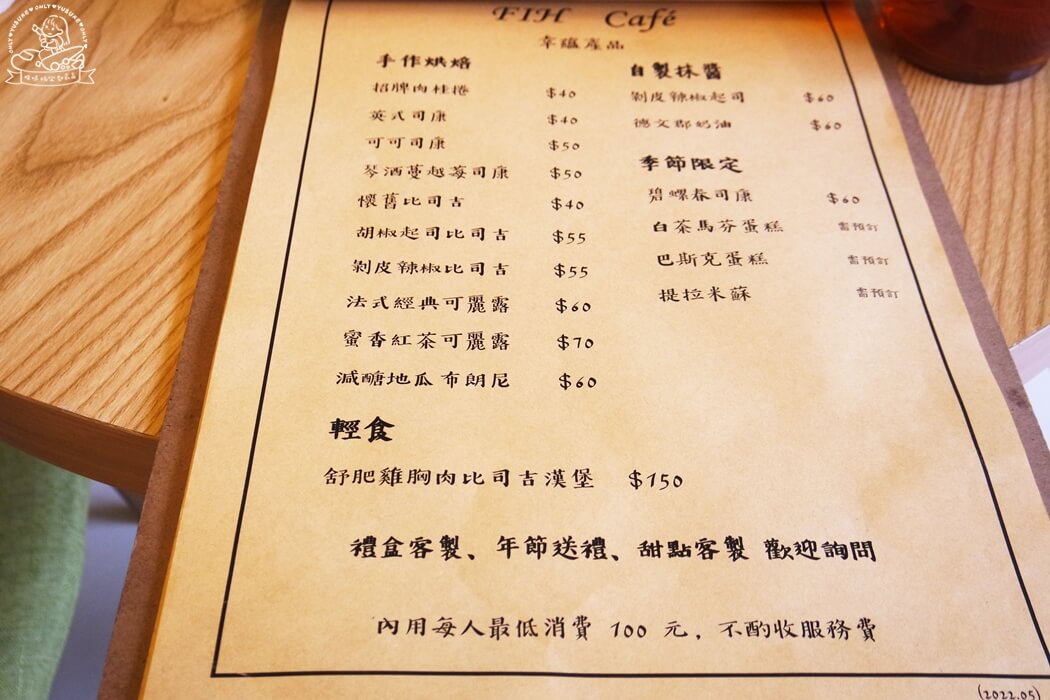 FIH Café
幸蘊產品
手作烘焙
招牌肉桂捲 $40
英式司康 $40
可可司康 $50
琴酒蔓越莓司康 $50
懷舊比司吉 $40
胡椒起司比司吉 $55
剝皮辣椒比司吉 $55
法式經典可麗露 $60
蜜香紅茶可麗露 $70
減醣地瓜布朗尼 $60
自製抹醬
剝皮辣椒起司 $60
德文郡奶油 $60
季節限定
碧螺春司康 $60
白茶馬芬蛋糕 需預訂
巴斯克蛋糕 需預訂
提拉米蘇 需預訂
輕食
舒肥雞胸肉比司吉漢堡 $150
禮盒客製、年節送禮、甜點客製 歡迎詢問
內用每人最低消費 100 元, 不酌收服務費
(2022.05)